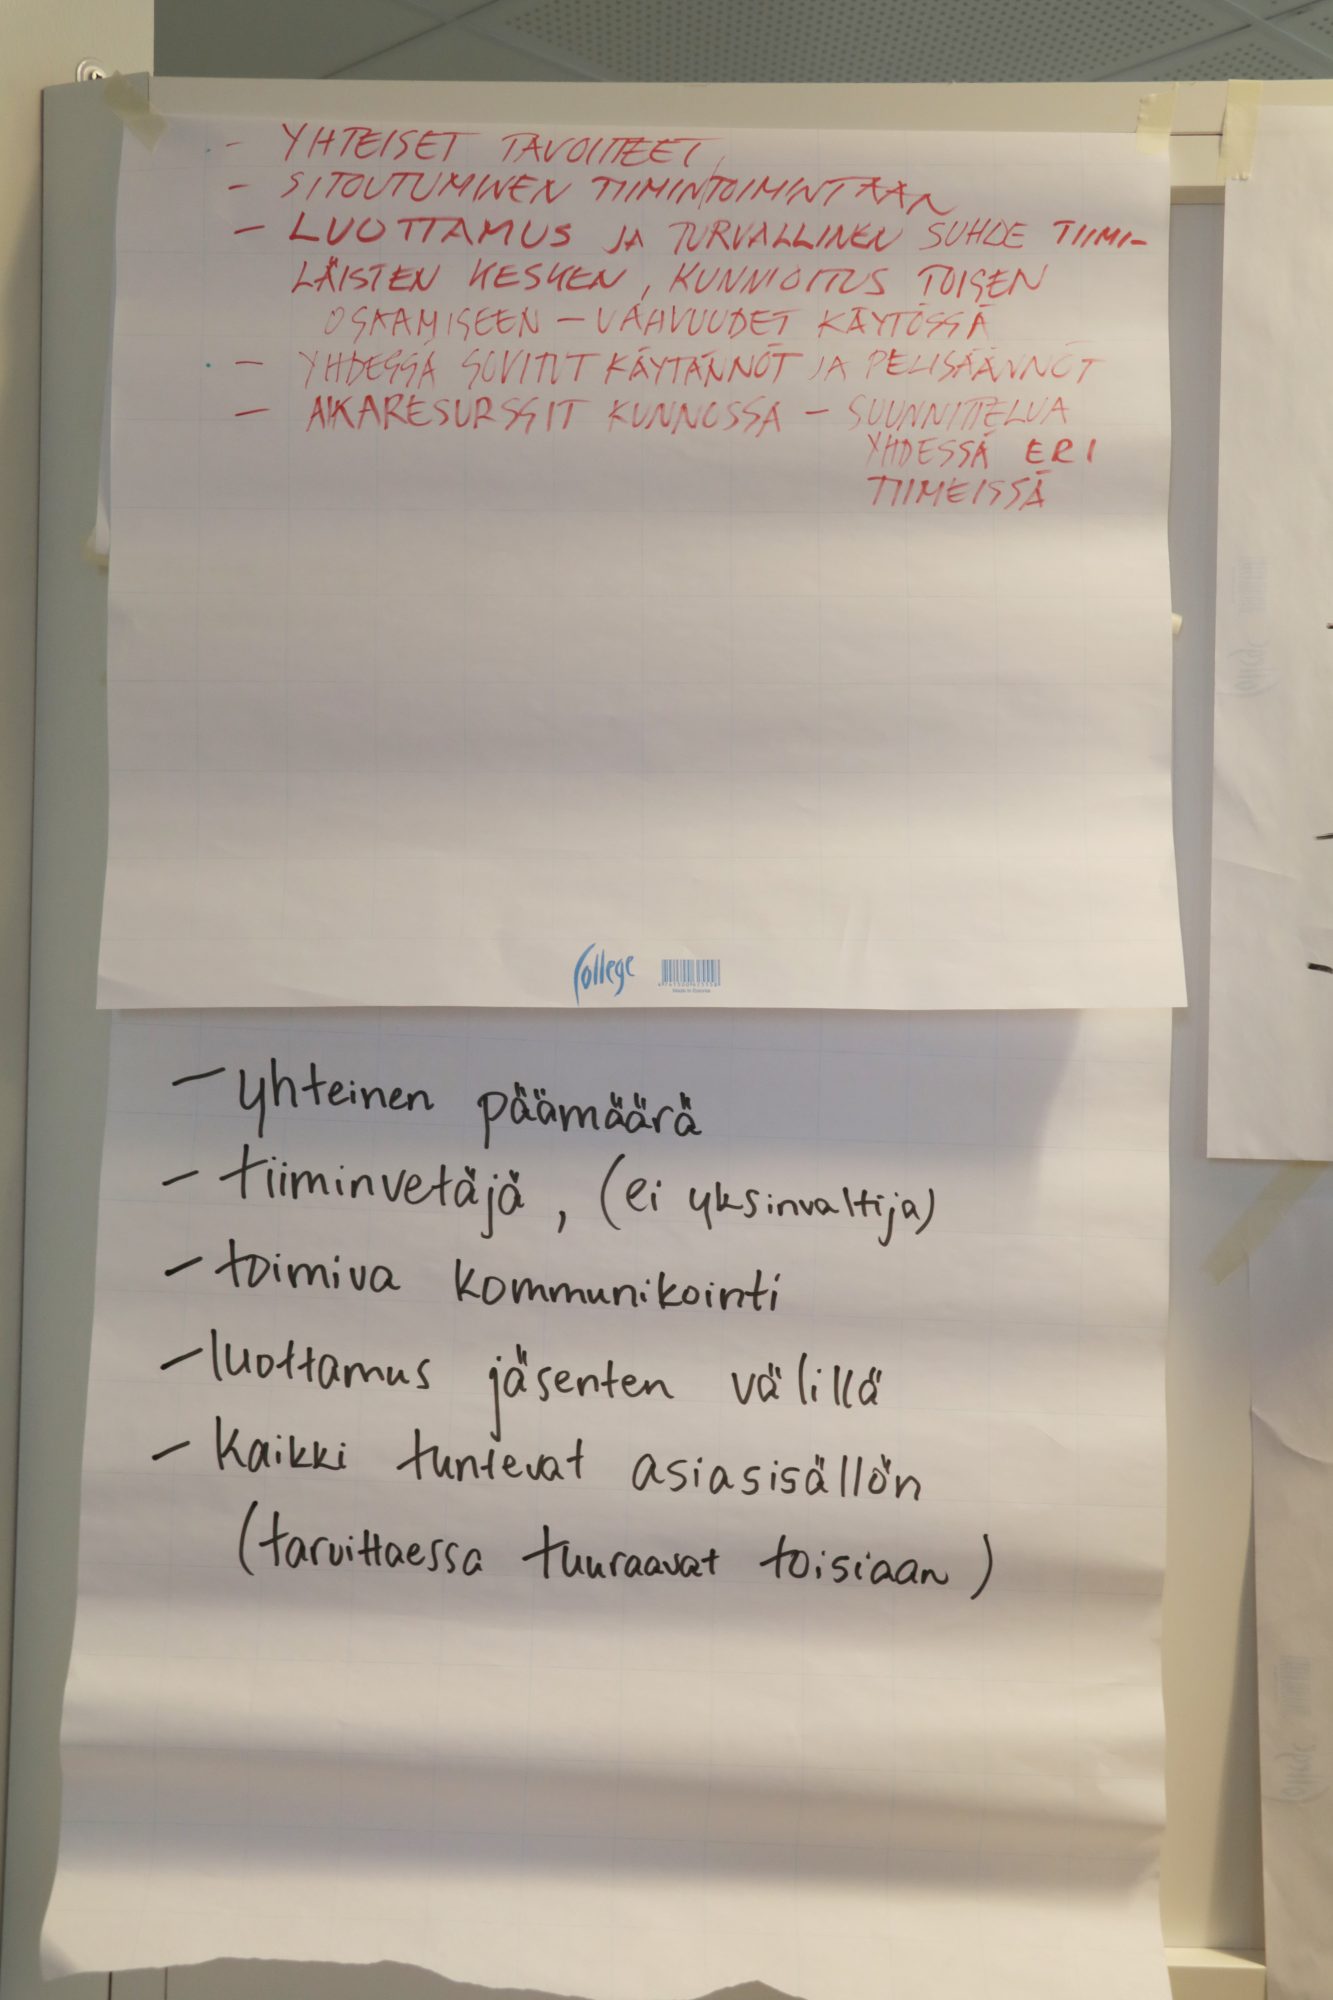 - YHTEISET TAVOITTEET,
- SITOUTUMINEN TIIMINTOIMINTAAN
- LUOTTAMUS JA TURVALLINEN SUHDE TIIMI-
LÄISTEN KESKEN, KUNNIOITUS TOISEN
OSAAMISEEN - VAHVUUDET KÄYTÖSSÄ
- YHDESSÄ SOVITUT KÄYTÄNNÖT JA PELISÄÄNNÖT
- AIKARESURSSIT KUNNOSSA - SUUNNITTELUA
YHDESSÄ ERI
TIIMEISSÄ
College
Made in Estonia
- yhteinen päämäärä
- tiiminvetäjä, (ei yksinvaltija)
- toimiva kommunikointi
- luottamus jäsenten välillä
- Kaikki tuntevat asiasisällön
(tarvittaessa tuuraavat toisiaan)
College
College